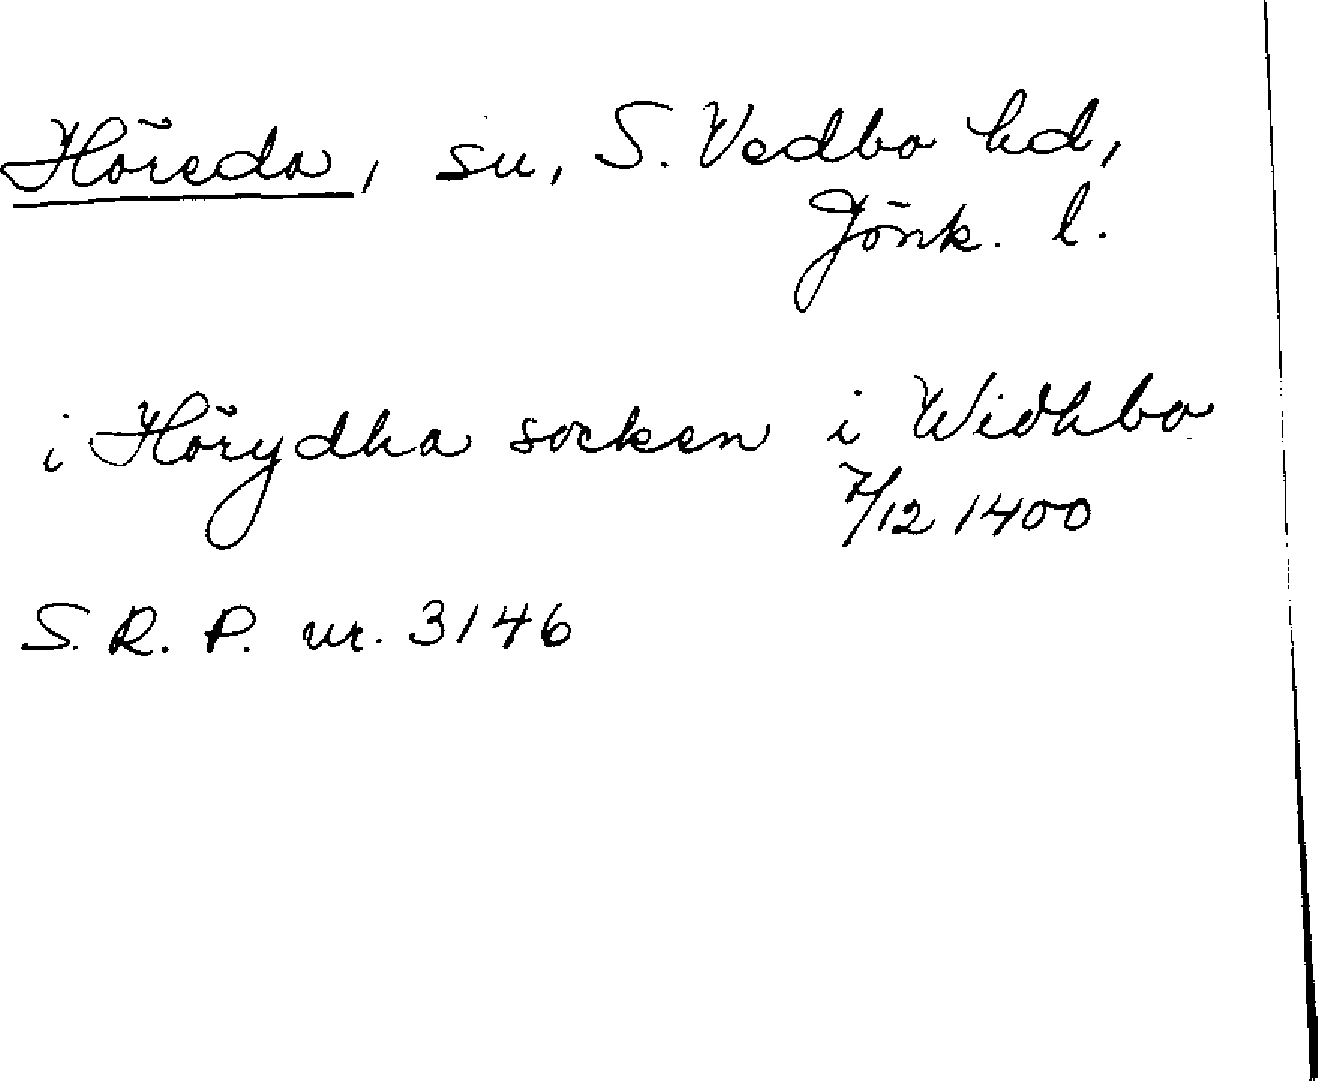 Höreda, sn, S. Vedbo hd,
Jönk. l.
i Hörydha socken i Widhbo
7/12 1400
S. R. P. nr. 3146